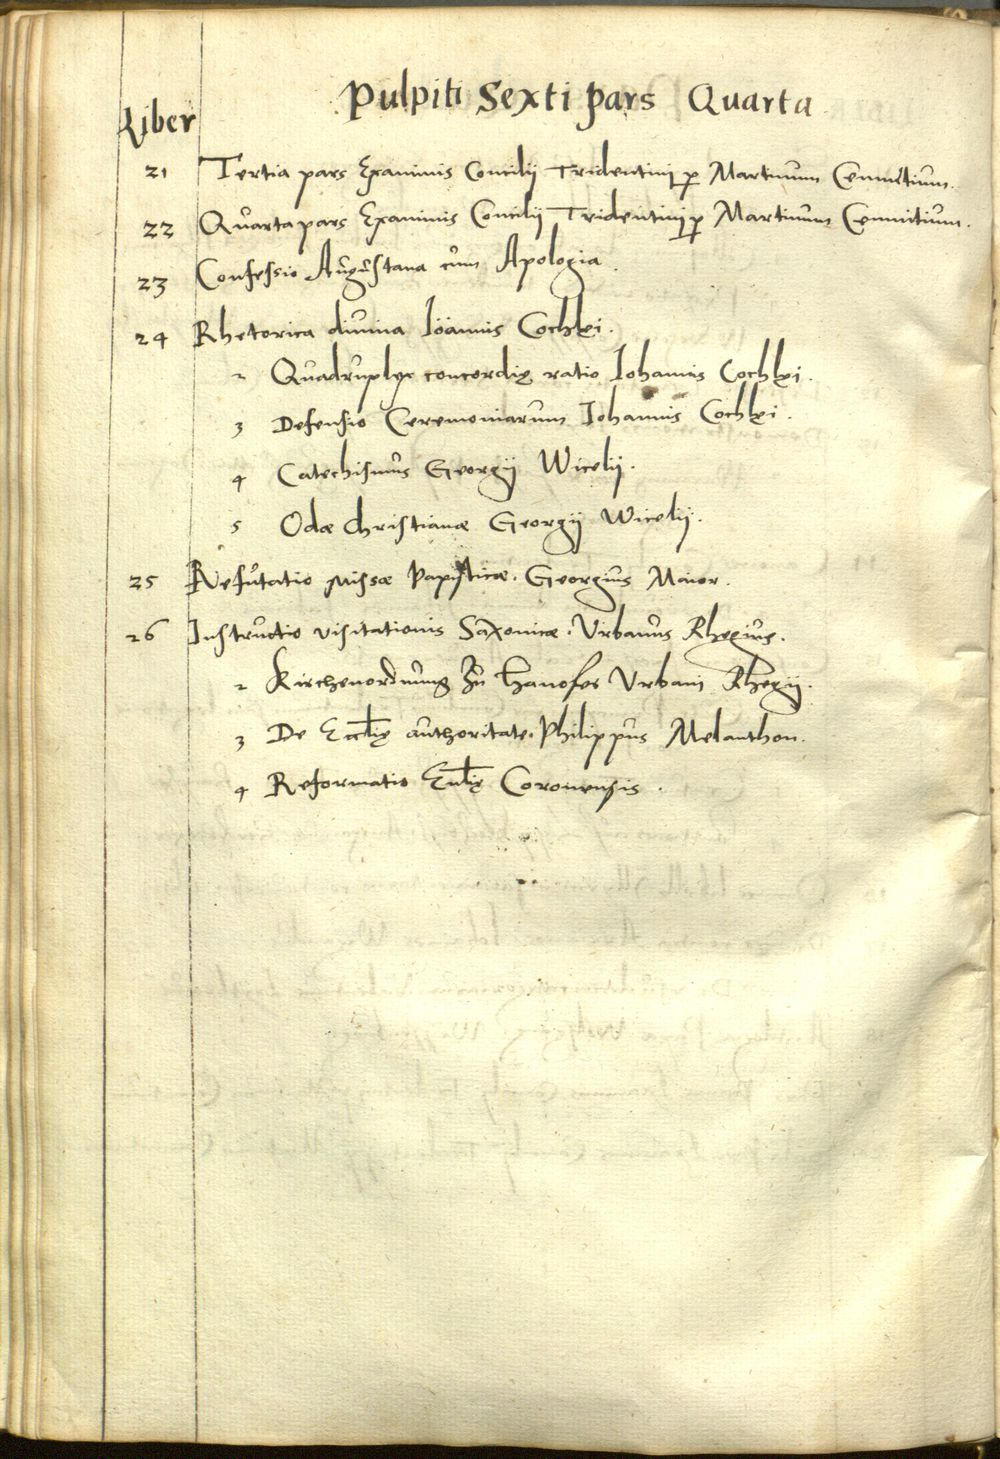 Pulpiti Sexti pars Quarta
Liber
21 Tertia pars Examinis Concilij Tridentini p Martinum Cemnitium.
22 Quarta pars Examinis Concilij Tridentini p Martinum Cemnitium.
23 Confessio Augustana cum Apologia.
24 Rhetorica diuina Ioannis Cochlęi.
2 Quadruplex concordię ratio Iohannis Cochlęi.
3 Defensio Ceremoniarum Iohannis Cochlęi.
4 Catechismus Georgij Wicelij.
5 Odæ Christianæ Georgij Wicelij.
25 Refutatio Missæ Papisticæ. Georgius Maior.
26 Instructio visitationis Saxonicæ. Vrbanus Rhegius.
2 Kirchenordnung Zu Hanofer Vrbani Rhegij.
3 De Eccłię authoritate. Philippus Melanthon.
4 Reformatio Eccłię Coronensis.